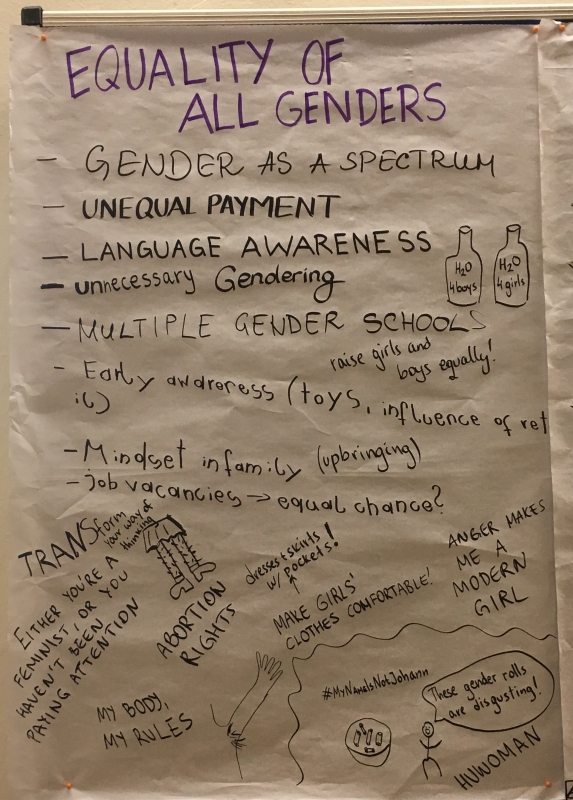 EQUALITY OF
ALL GENDERS
- GENDER AS A SPECTRUM
- UNEQUAL PAYMENT
- LANGUAGE AWARENESS
- unnecessary Gendering
H2O
4 boys
H2O
4 girls
- MULTIPLE GENDER SCHOOLS
raise girls and
boys equally!
- Early awareness (toys, influence of ret
- Mindset in family (upbringing)
- job vacancies → equal chance?
TRANSform
your way of
thinking
EITHER YOU'RE A
FEMINIST, OR YOU
HAVEN'T BEEN
PAYING ATTENTION
ABORTION
RIGHTS
dresses + skirts
w/ pockets!
MAKE GIRLS'
CLOTHES COMFORTABLE!
ANGER MAKES
ME A
MODERN
GIRL
MY BODY,
MY RULES
#MyNameIsNotJohann
These gender rolls
are disgusting!
HUWOMAN